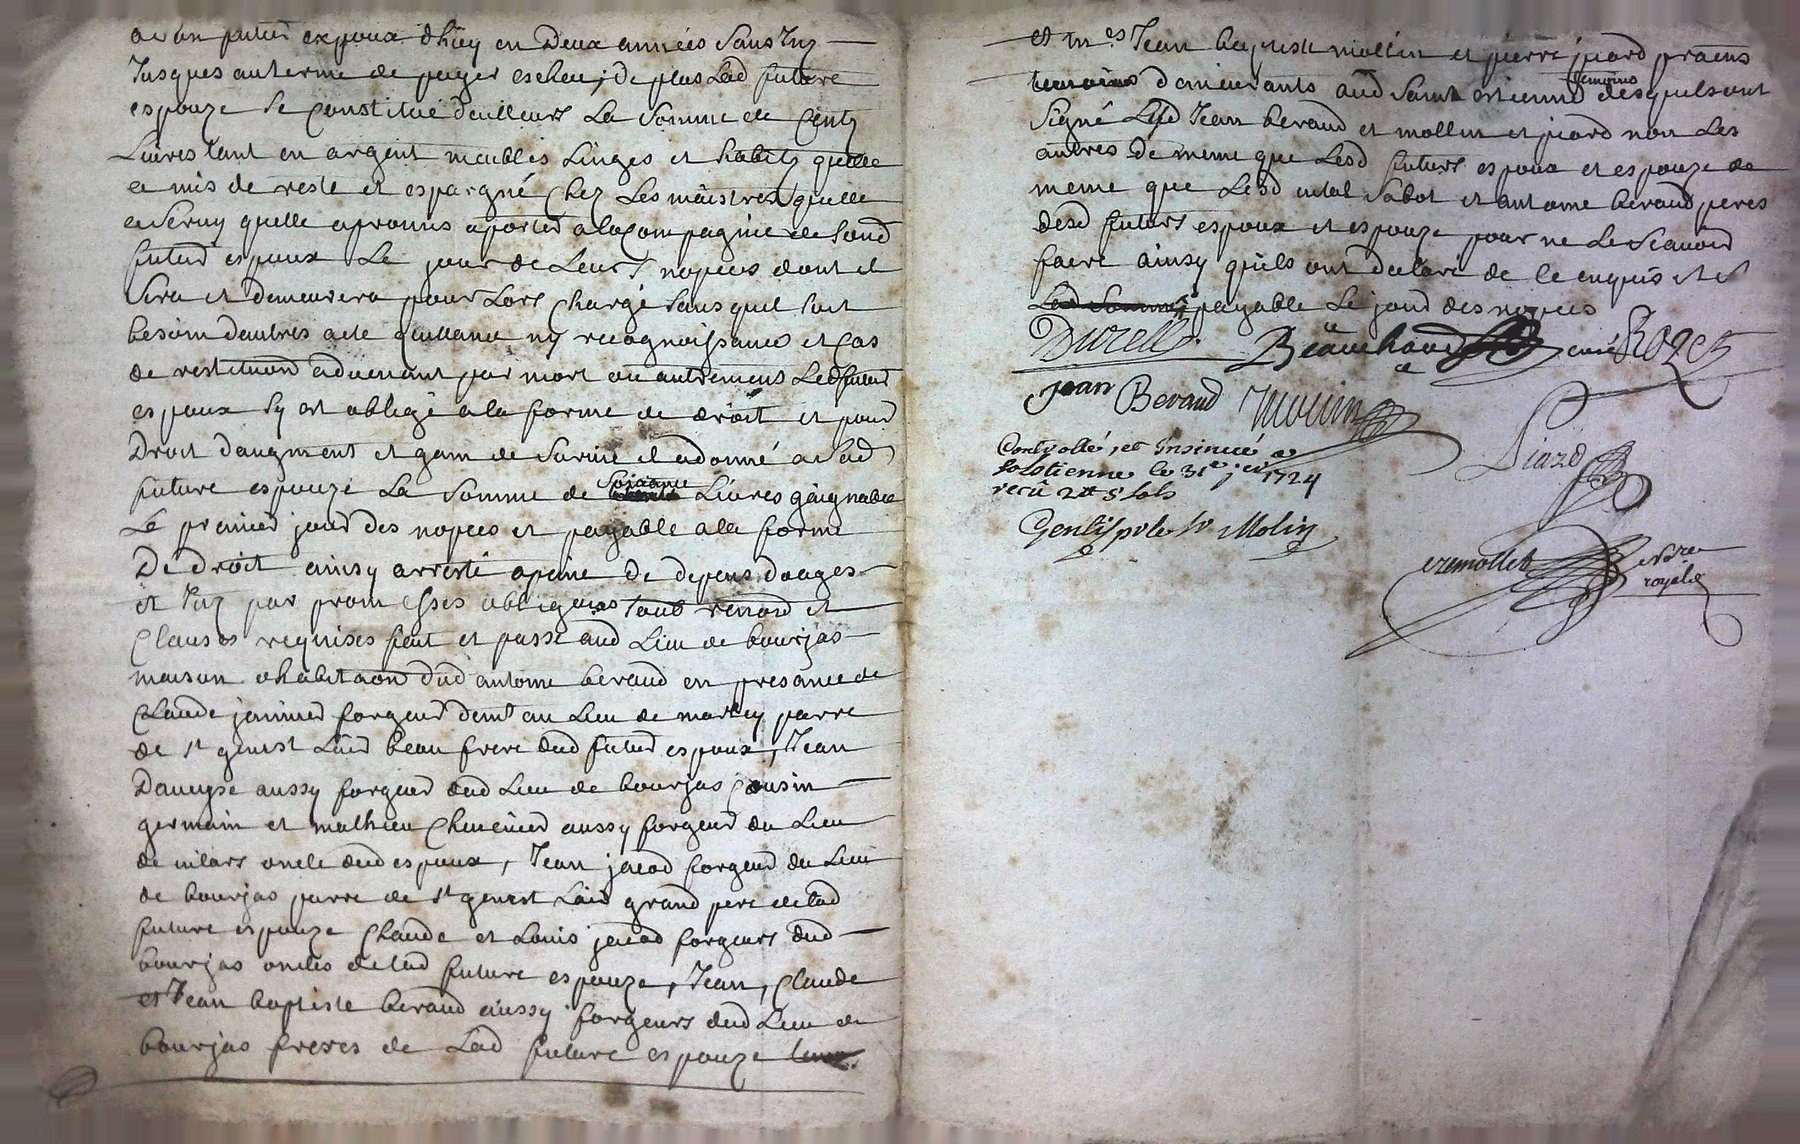 futur expoux d'huy en deux années sans Inz
Jusques au terme de payer escheu; de plus Lad future
espouze se constitue d'ailleurs La somme de Centz
Livres tant en argent meubles Linges et habitz quelle
a mis de reste et espargné Chez Les maistres quelle
a servy quelle a promis aporter a la Compagnie de sond
futur espoux Le jour de Leurs nopces dont il
sera et demeurera pour Lors Chargé sans quil soit
besoin dautres acte quittance ny recognoissance et Cas
de restituon advenant par mort ou autremens Led futur
espoux sy est obligé a la forme de droit et pour
Droit daugment et gain de survie il a donné a lad
future espouze La somme de soixante Livres gaignables
Le premier jour des nopces et payable a la forme
De droit ainsy arresté a peine de depens domages
et Inz par promesses obligaons renond et
Clauses requises fait et passé aud Lieu de bourjas
maison dhabitaon dud antoine beraud en presance de
Claude janined forgeur demt au Lieu de marley parre
de st genest Laird beau frere dud futur espoux, Jean
aussy forgeur dud Lieu de bourjas Cousin
germain et mathieu aussy forgeur du Lieu
de vilars oncle dud espoux, Jean jacod forgeur du Lieu
de bourjas parre de st genest Lair grand pere de lad
future espouze Claude et Louis jacod forgeurs dud
bourjas oncles de lad future espouze, Jean, Claude
et Jean baptiste beraud aussy forgeurs dud Lieu de
bourjas freres de Lad future espouze
et mes Jean baptiste mollin et pierre piard praens
temoins
demeurants aud Saint estienne desquels ont
signé Led Jean beraud et mollin et piard non Les
autres de meme que Lesd futurs espoux et espouze de
meme que Lesd vital sabot et antoine beraud peres
desd futurs espoux et espouze pour ne Le scavoir
faire ainsy quils ont declaré de ce enquis et
payable Le jour des nopces
Durell Beauchaud curé Roget
jean Beraud Mollin
Piard
Controllé, et Insinué a
St Estienne le 31e jer 1724
recu 2tt 8 sols
Gentispole Molin
cremollet nore
royal